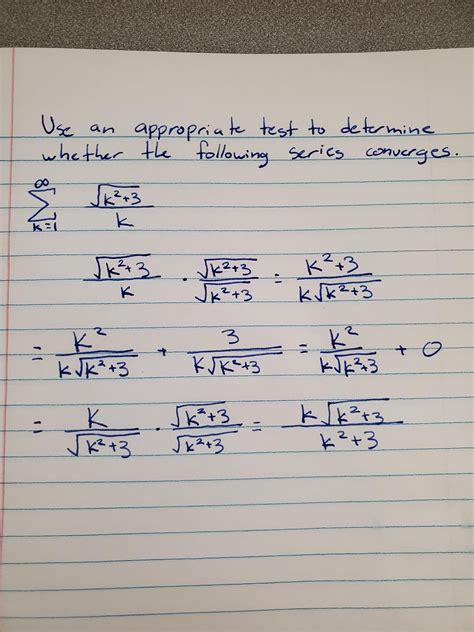 Use an appropriate test to determine
whether the following series converges.
∞
∑ √(k²+3) / k
k=1
√(k²+3) / k · √(k²+3) / √(k²+3) = (k²+3) / (k√(k²+3))
= k² / (k√(k²+3)) + 3 / (k√(k²+3)) = k² / (k√(k²+3)) + 0
= k / √(k²+3) · √(k²+3) / √(k²+3) = k√(k²+3) / (k²+3)